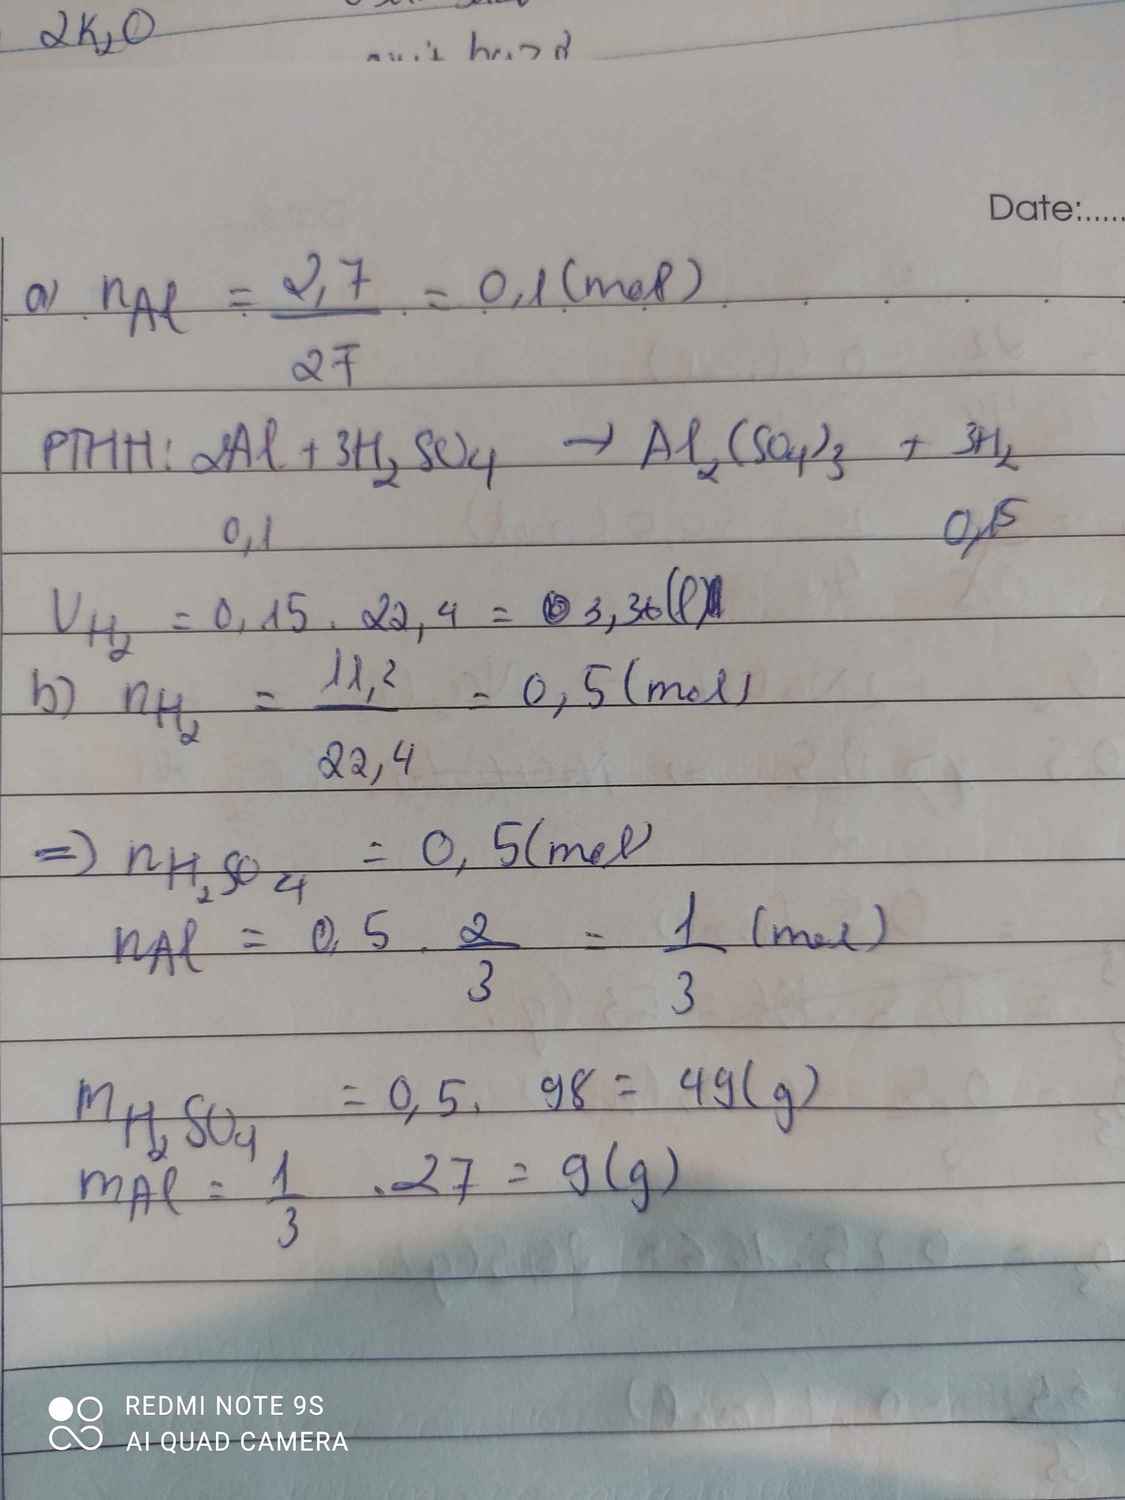 2K₂O
Date:.....
a) nAl = 2,7 / 27 = 0,1 (mol)
PTHH: 2Al + 3H₂SO₄ → Al₂(SO₄)₃ + 3H₂
0,1 0,15
VH₂ = 0,15 . 22,4 = 3,36 (l)
b) nH₂ = 11,2 / 22,4 = 0,5 (mol)
=) nH₂SO₄ = 0,5 (mol
nAl = 0,5 . 2/3 = 1/3 (mol)
mH₂SO₄ = 0,5 . 98 = 49 (g)
mAl = 1/3 . 27 = 9 (g)
REDMI NOTE 9S
AI QUAD CAMERA